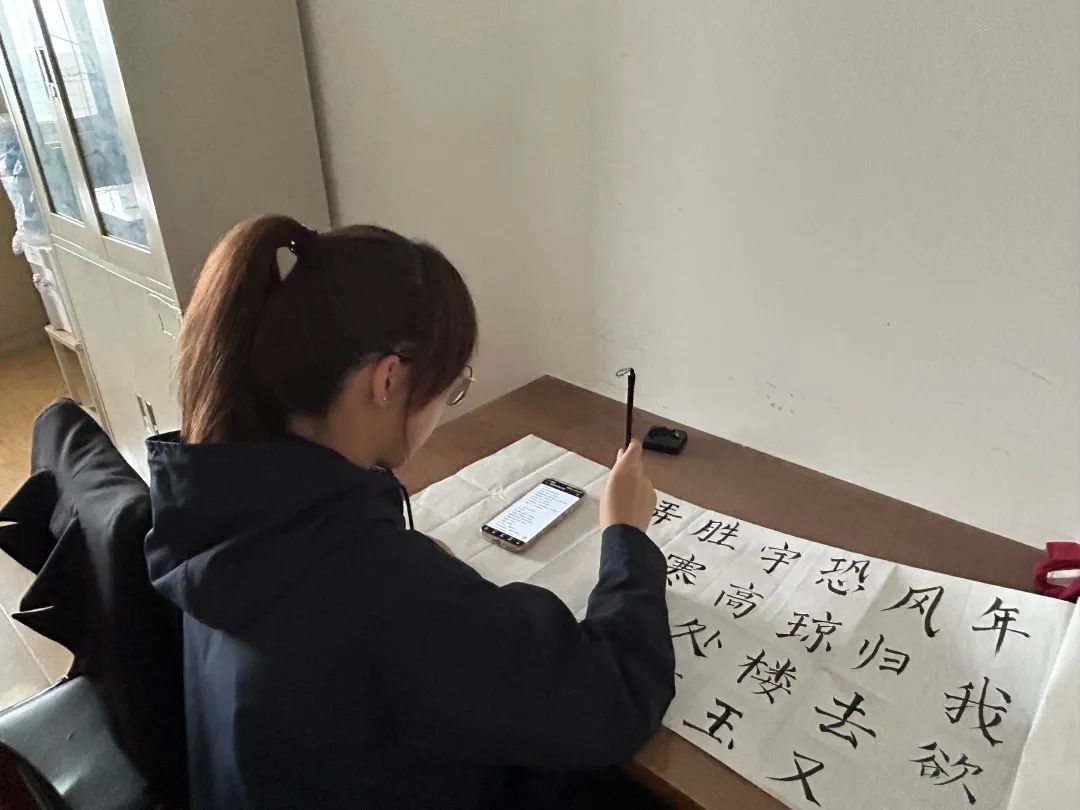 年我欲
风归去又
恐琼楼玉
宇高处
胜寒
弄